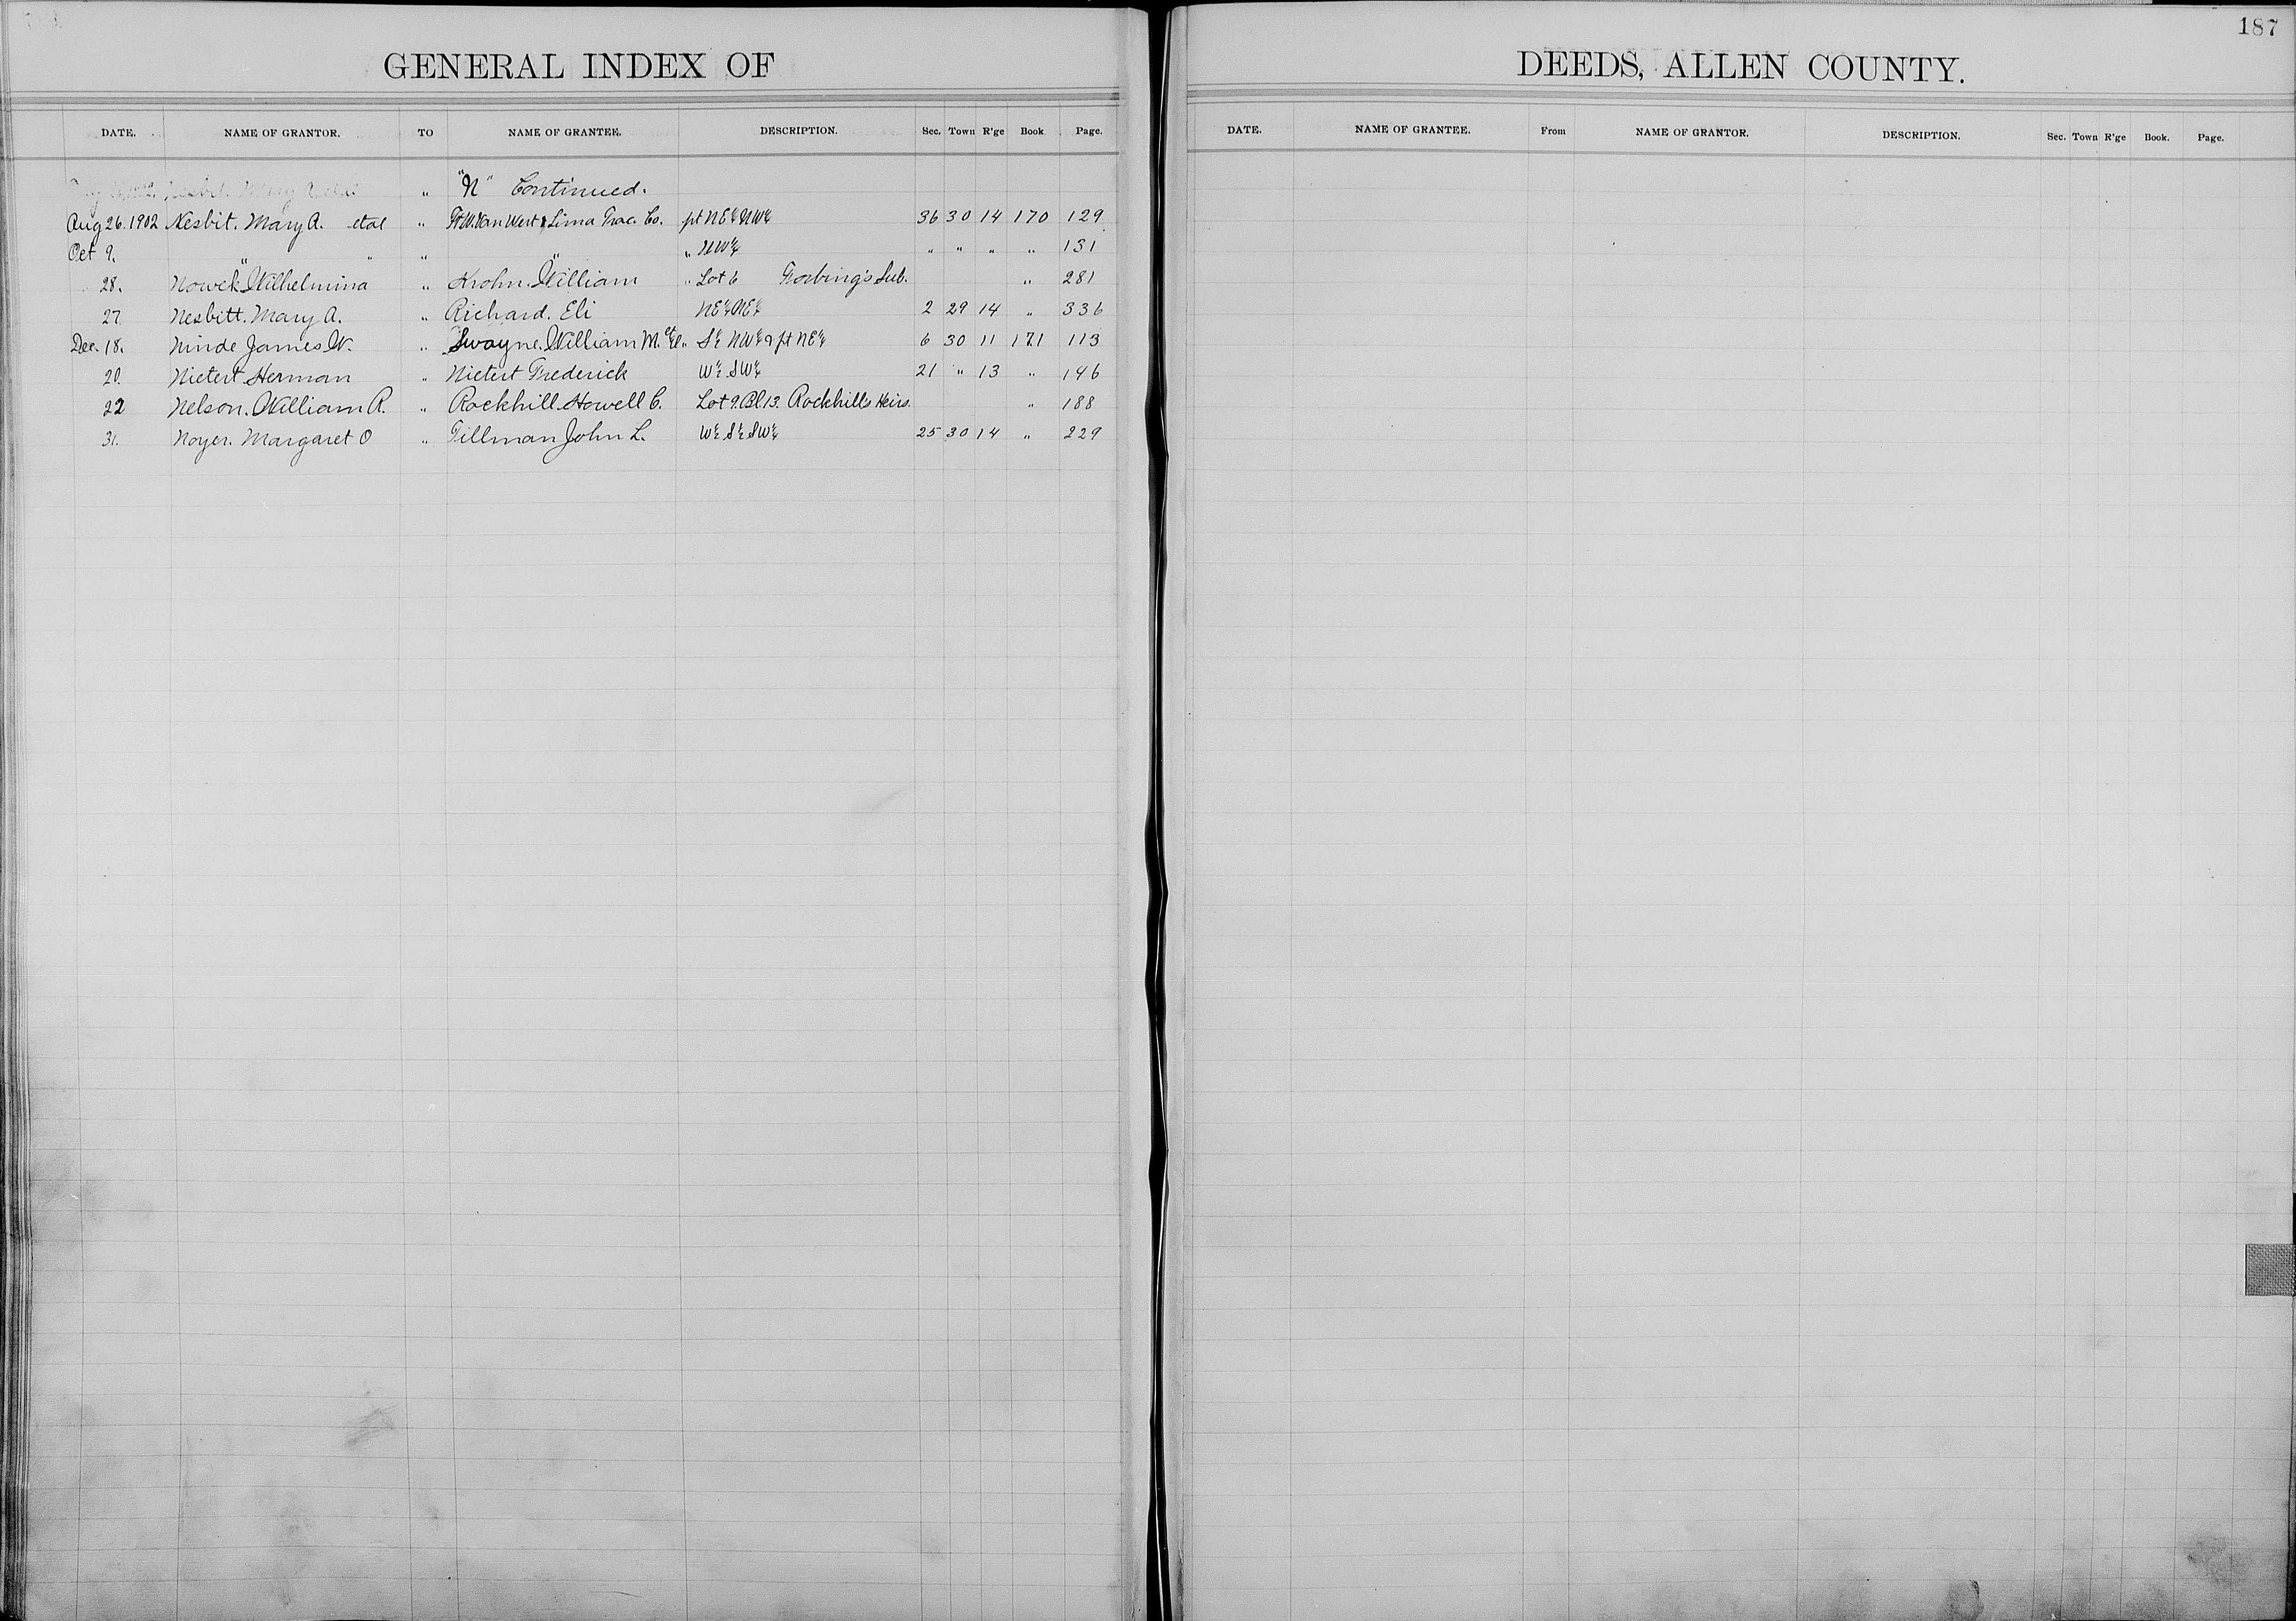 187
GENERAL INDEX OF DEEDS, ALLEN COUNTY.
DATE. NAME OF GRANTOR. TO NAME OF GRANTEE. DESCRIPTION. Sec. Town R'ge Book Page.
DATE. NAME OF GRANTEE. From NAME OF GRANTOR. DESCRIPTION. Sec. Town R'ge Book. Page.
Nesbit. Mary A. etal " "N" Continued.
Aug 26. 1902 Nesbit. Mary A. etal " Ft W. Van Wert & Lima Trac. Co. pt NE¼ NW¼ 36 30 14 170 129
Oct 9. " " " " " NW¼ " " " " 131
28. Nowek Wilhelmina " Krohn. William " Lot 6 Forbing's Sub. " 281
27 Nesbitt. Mary A. " Richard. Eli NE¼ NE¼ 2 29 14 " 336
Dec. 18. Ninde James W. " Swayne. William M. et al. S½ NW¼ & pt NE¼ 6 30 11 171 113
20. Nietert Herman " Nietert Frederick W½ SW¼ 21 " 13 " 146
22 Nelson. William R. " Rockhill. Howell C. Lot 9. Bl 13. Rockhills Heirs. " 188
31. Noyer. Margaret O " Tillman John L. W½ S½ SW¼ 25 30 14 " 229